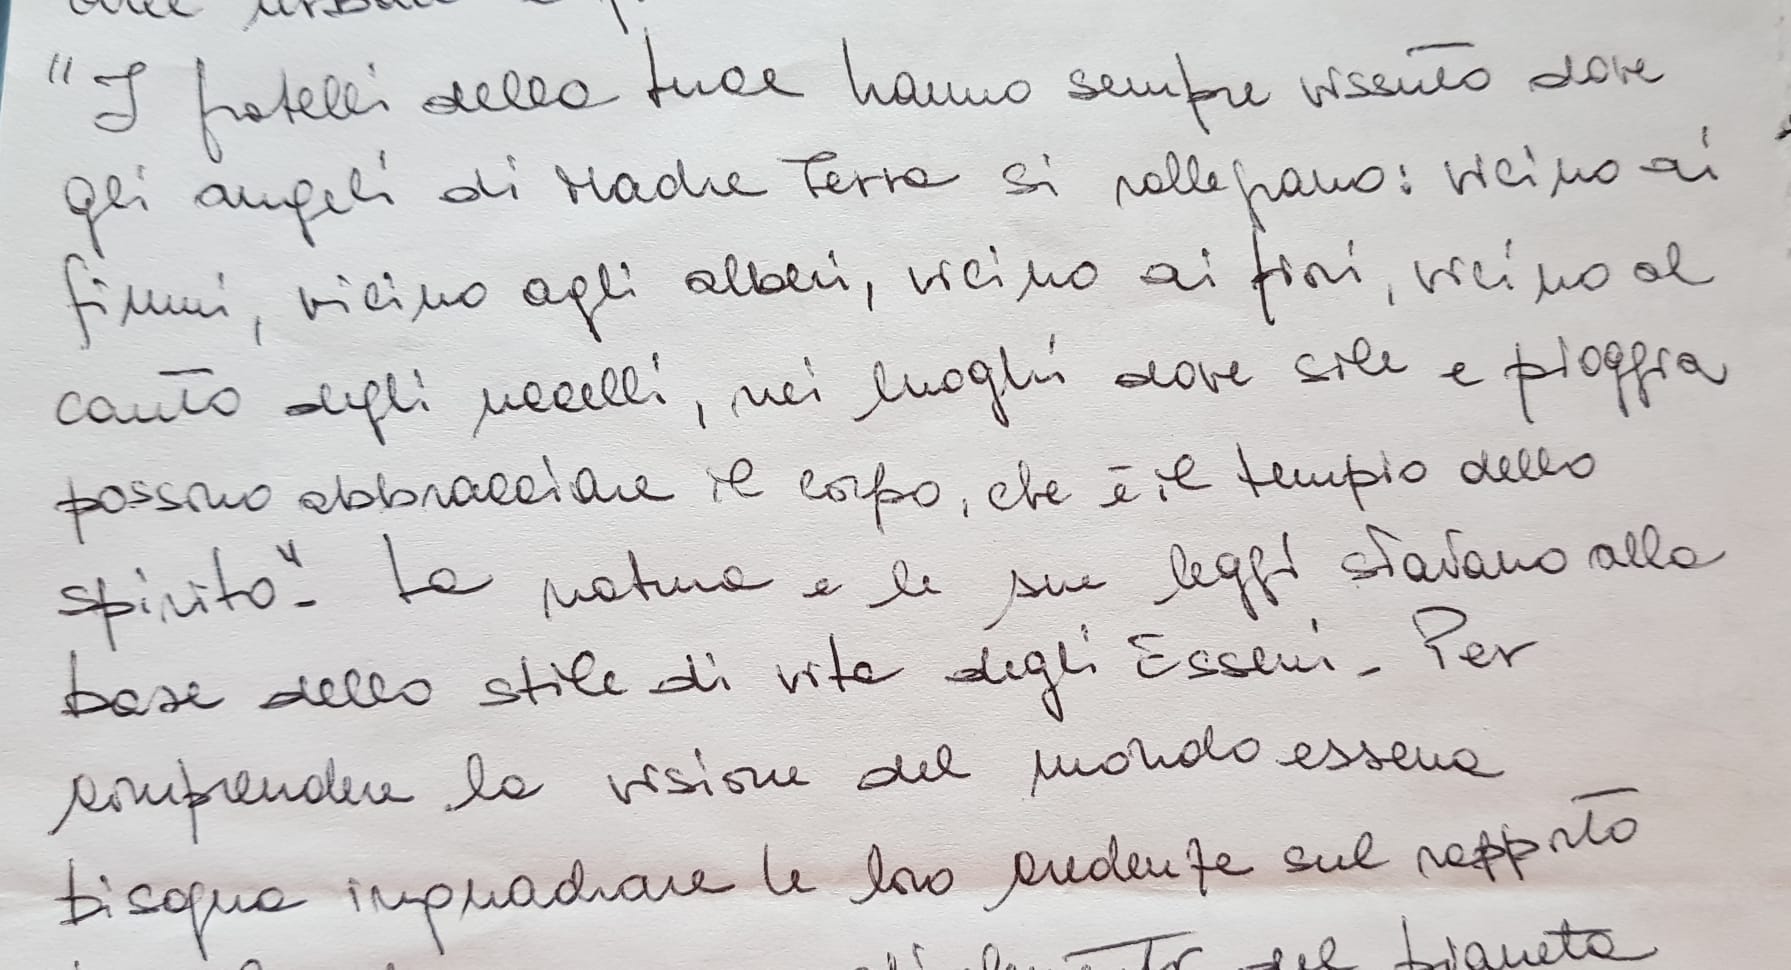 "I fratelli della luce hanno sempre vissuto dove
gli angeli di Madre Terra si rallegrano: vicino ai
fiumi, vicino agli alberi, vicino ai fiori, vicino al
canto degli uccelli, nei luoghi dove sole e pioggia
possono abbracciare il corpo, che è il tempio dello
spirito". La natura e le sue leggi stavano alla
base dello stile di vita degli Esseni. Per
comprendere la visione del mondo essena
bisogna inquadrare le loro credenze sul rapporto
del pianeta